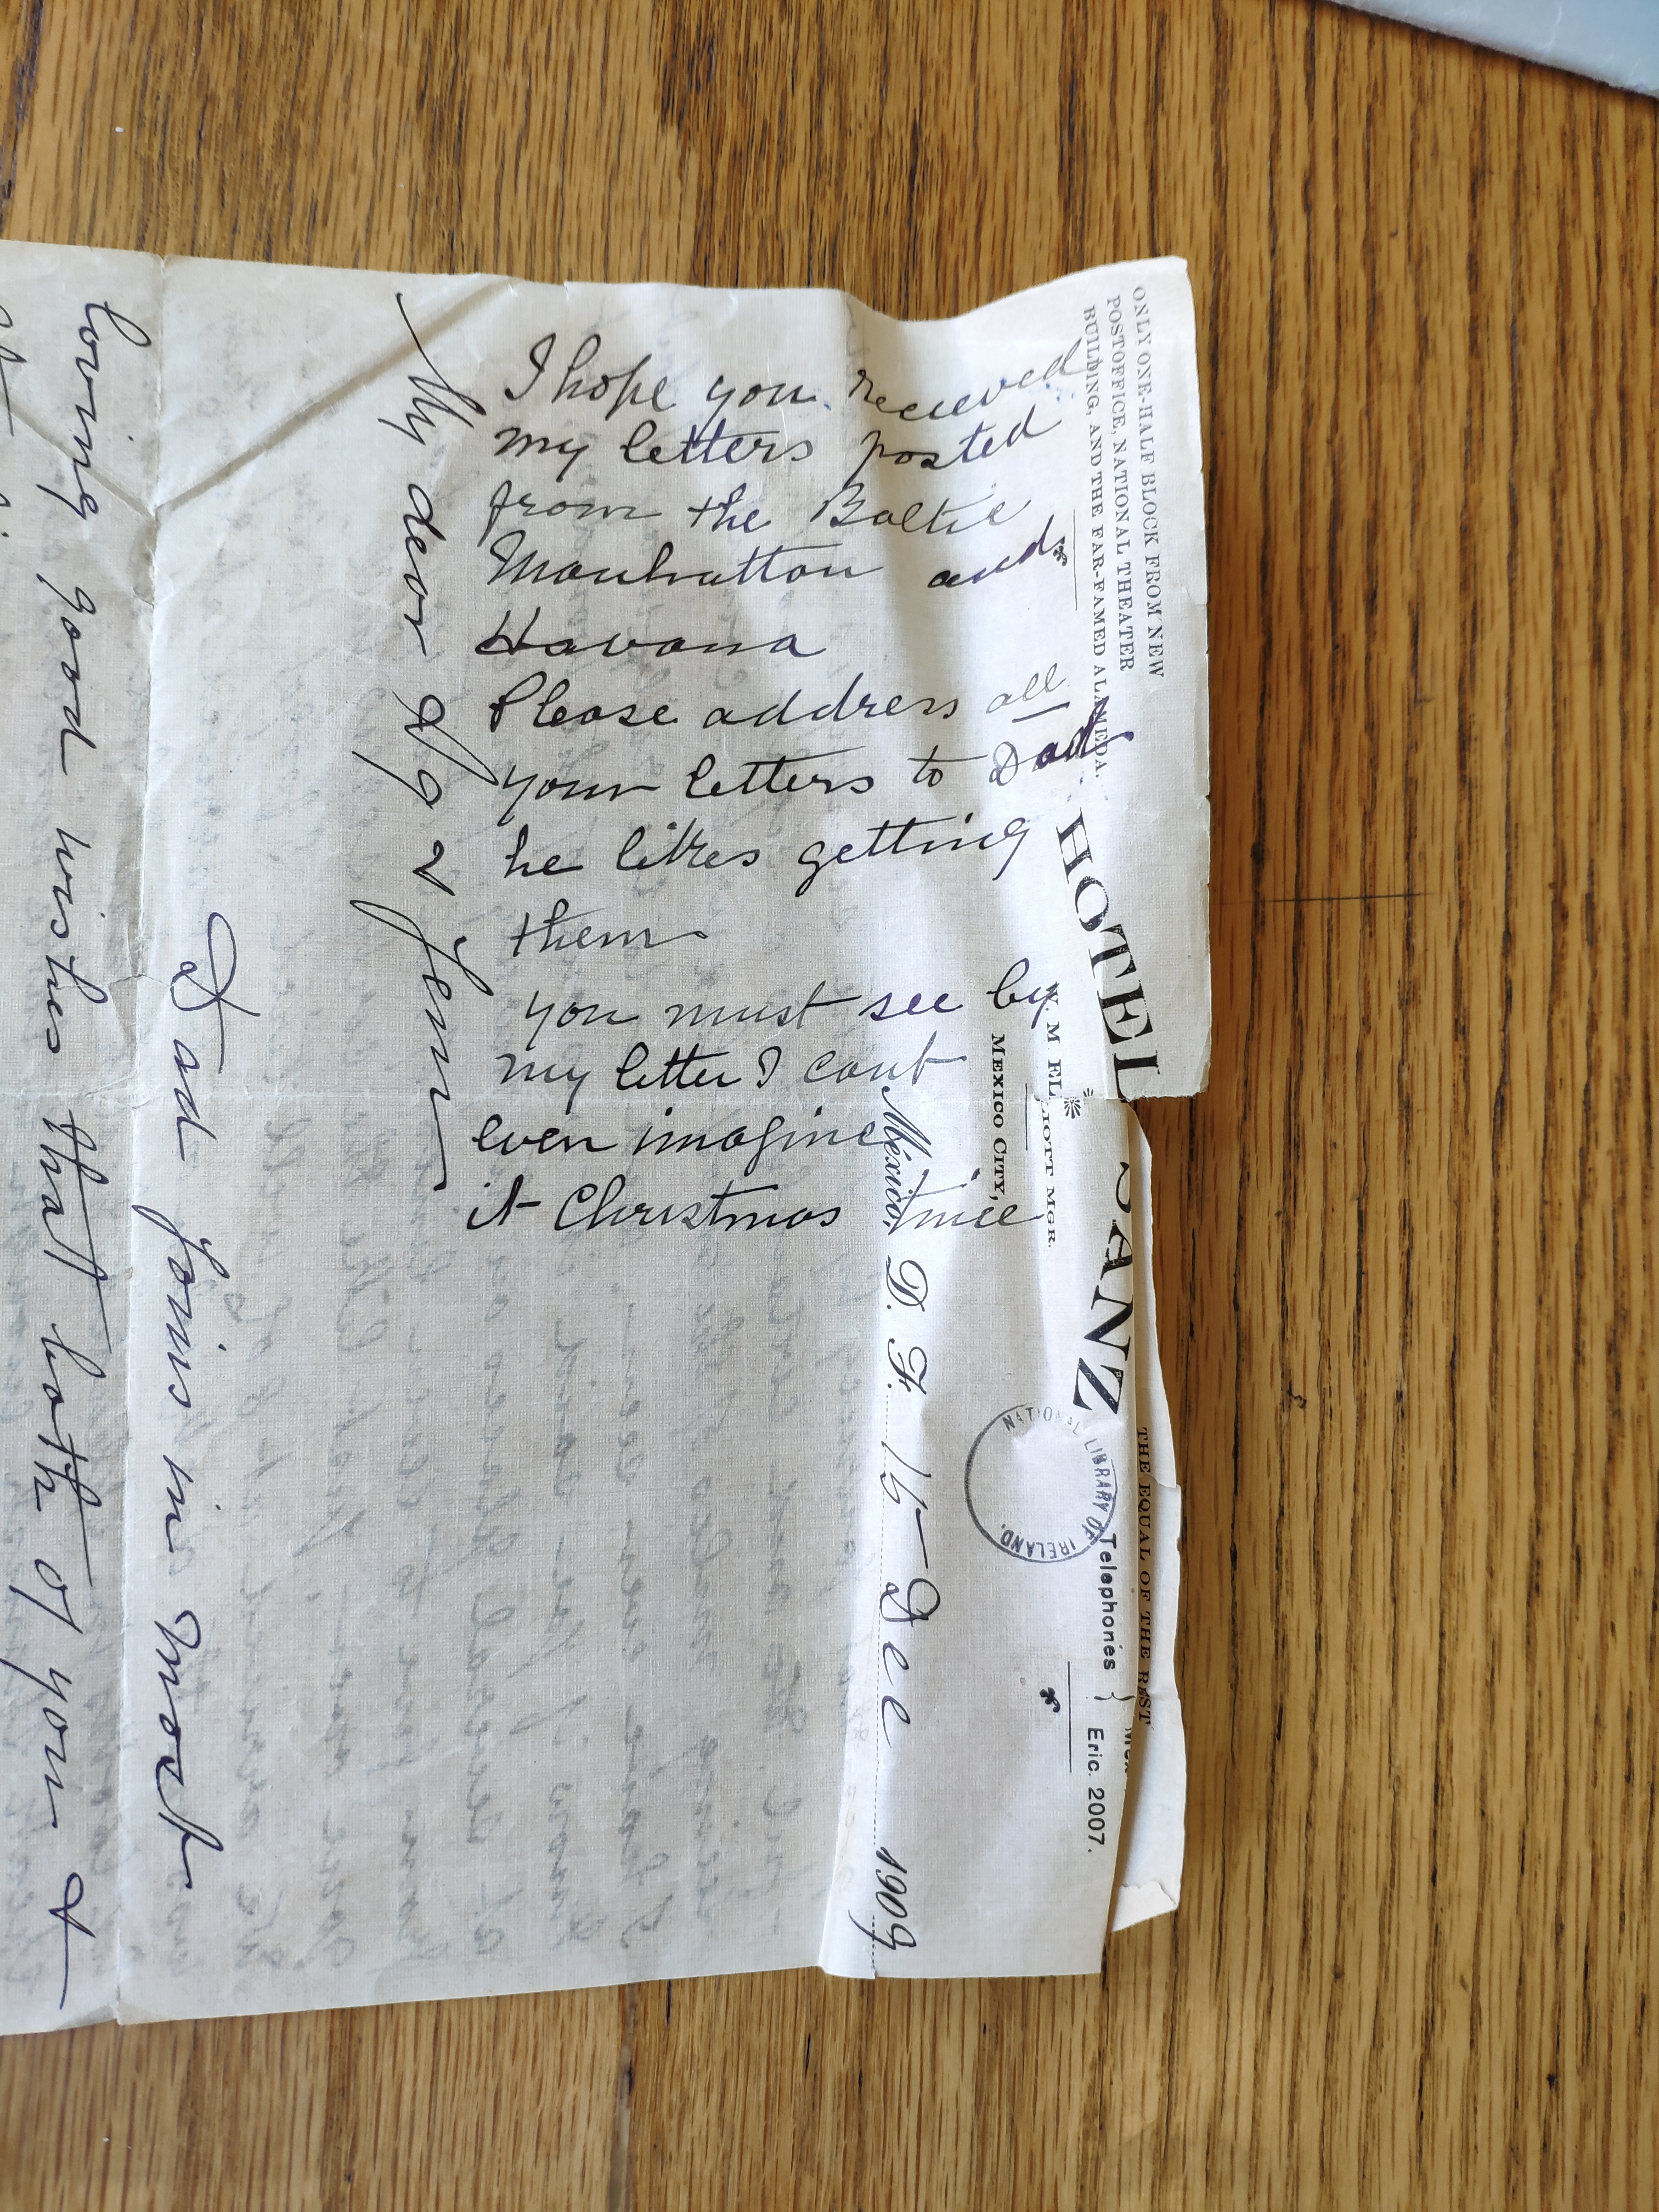 ONLY ONE-HALF BLOCK FROM NEW
POSTOFFICE, NATIONAL THEATER
BUILDING, AND THE FAR-FAMED ALAMEDA.
HOTEL SANZ
THE EQUAL OF THE REST
Telephones } Mex.
Eric. 2007.
M ELLIOTT MGR.
MEXICO CITY,
NATIONAL LIBRARY OF IRELAND.
México, D. F. 15 Dec 1909
I hope you received
my letters posted
from the Baltic
Manhattan and
Havana
Please address all
your letters to Dad
he likes getting
them
you must see by
my letter I cant
even imagine
it Christmas time
My dear
Dad joins in most
loving good wishes that both of you &